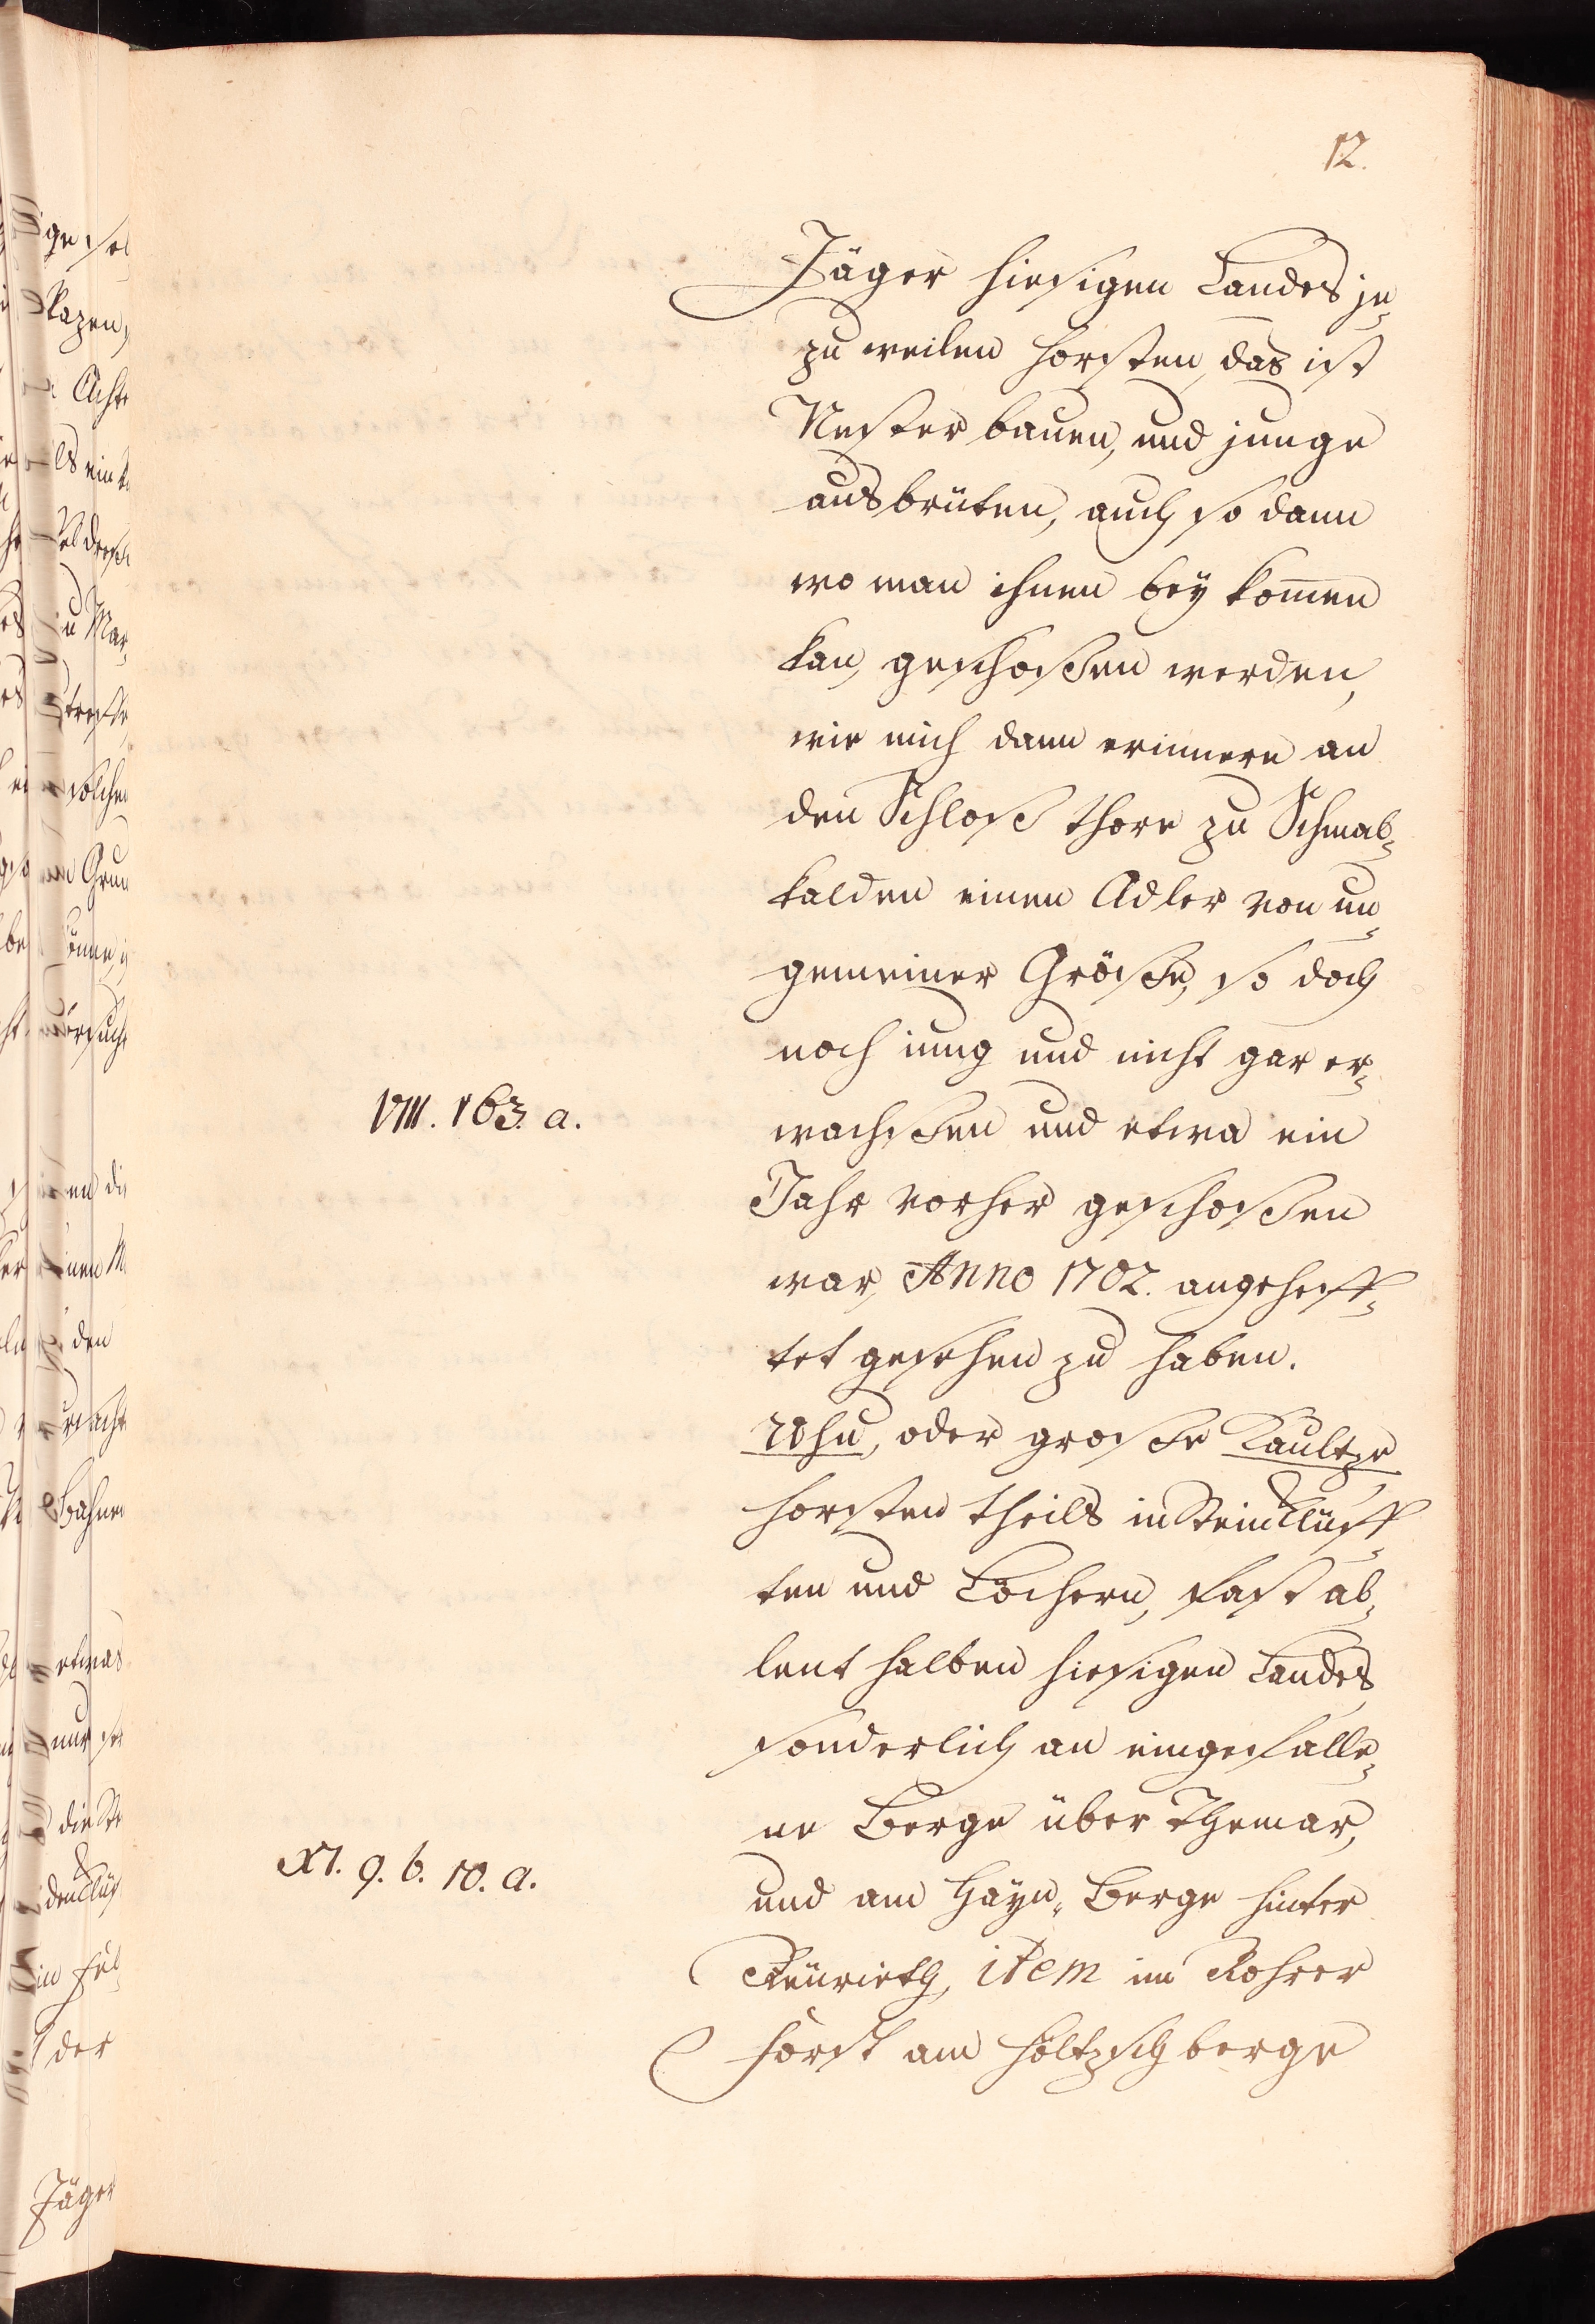 12.
Jäger hiesigen Landes je-
zu weilen horsten, das ist
Nester bauen, und junge
ausbrüten, auch so dann
wo man ihnen bey komen
kan, geschoßen werden,
wie mich dann erinnere an
den Schloß thore zu Schmal-
kalden einen Adler von un-
gemeiner Größe, so doch
noch iung und nicht gar er-
VIII. 163. a.
wachßen und etwa ein
Jahr vorher geschoßen
war, Anno 1702. angeheff-
tet gesehen zu haben.
Uhu, oder große Kaultze
horsten theils in Stein Klüff-
ten und Löchern, fast al-
lent halben hiesigen Landes
sonderlich an eingefalle-
ne Berge über Themar,
XI. 9. b. 10. a.
und am Hayn- Berge hinter
Reurieth, item im Rohrer
Forst am Höltzsch berge
Jäger